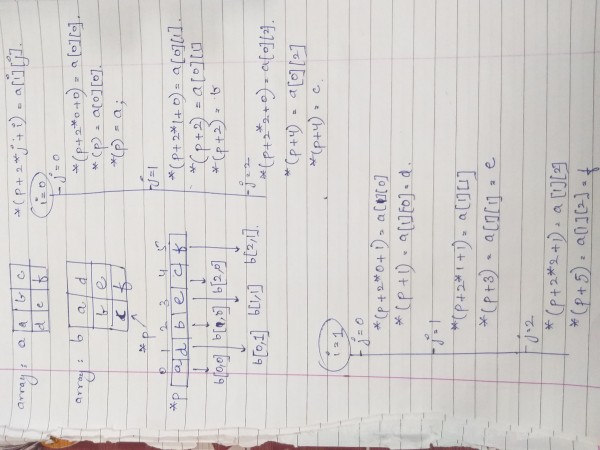 array : a
a b c
d e f
array : b
a d
b e
c f
*p
0 1 2 3 4 5
*p a d b e c f
b[0,0] b[1,0] b[2,0]
b[0,1] b[1,1] b[2,1].
*(p+2*j+i) = a[i][j].
i=0
-j=0
*(p+2*0+0) = a[0][0]
*(p) = a[0][0].
*(p) = a;
-j=1
*(p+2*1+0) = a[0][1].
*(p+2) = a[0][1]
*(p+2) = b
-j=2
*(p+2*2+0) = a[0][2].
*(p+4) = a[0][2]
*(p+4) = c.
i=1
-j=0
*(p+2*0+1) = a[1][0]
*(p+1) = a[1][0] = d.
-j=1
*(p+2*1+1) = a[1][1]
*(p+3) = a[1][1] = e
-j=2
*(p+2*2+1) = a[1][2]
*(p+5) = a[1][2] = f